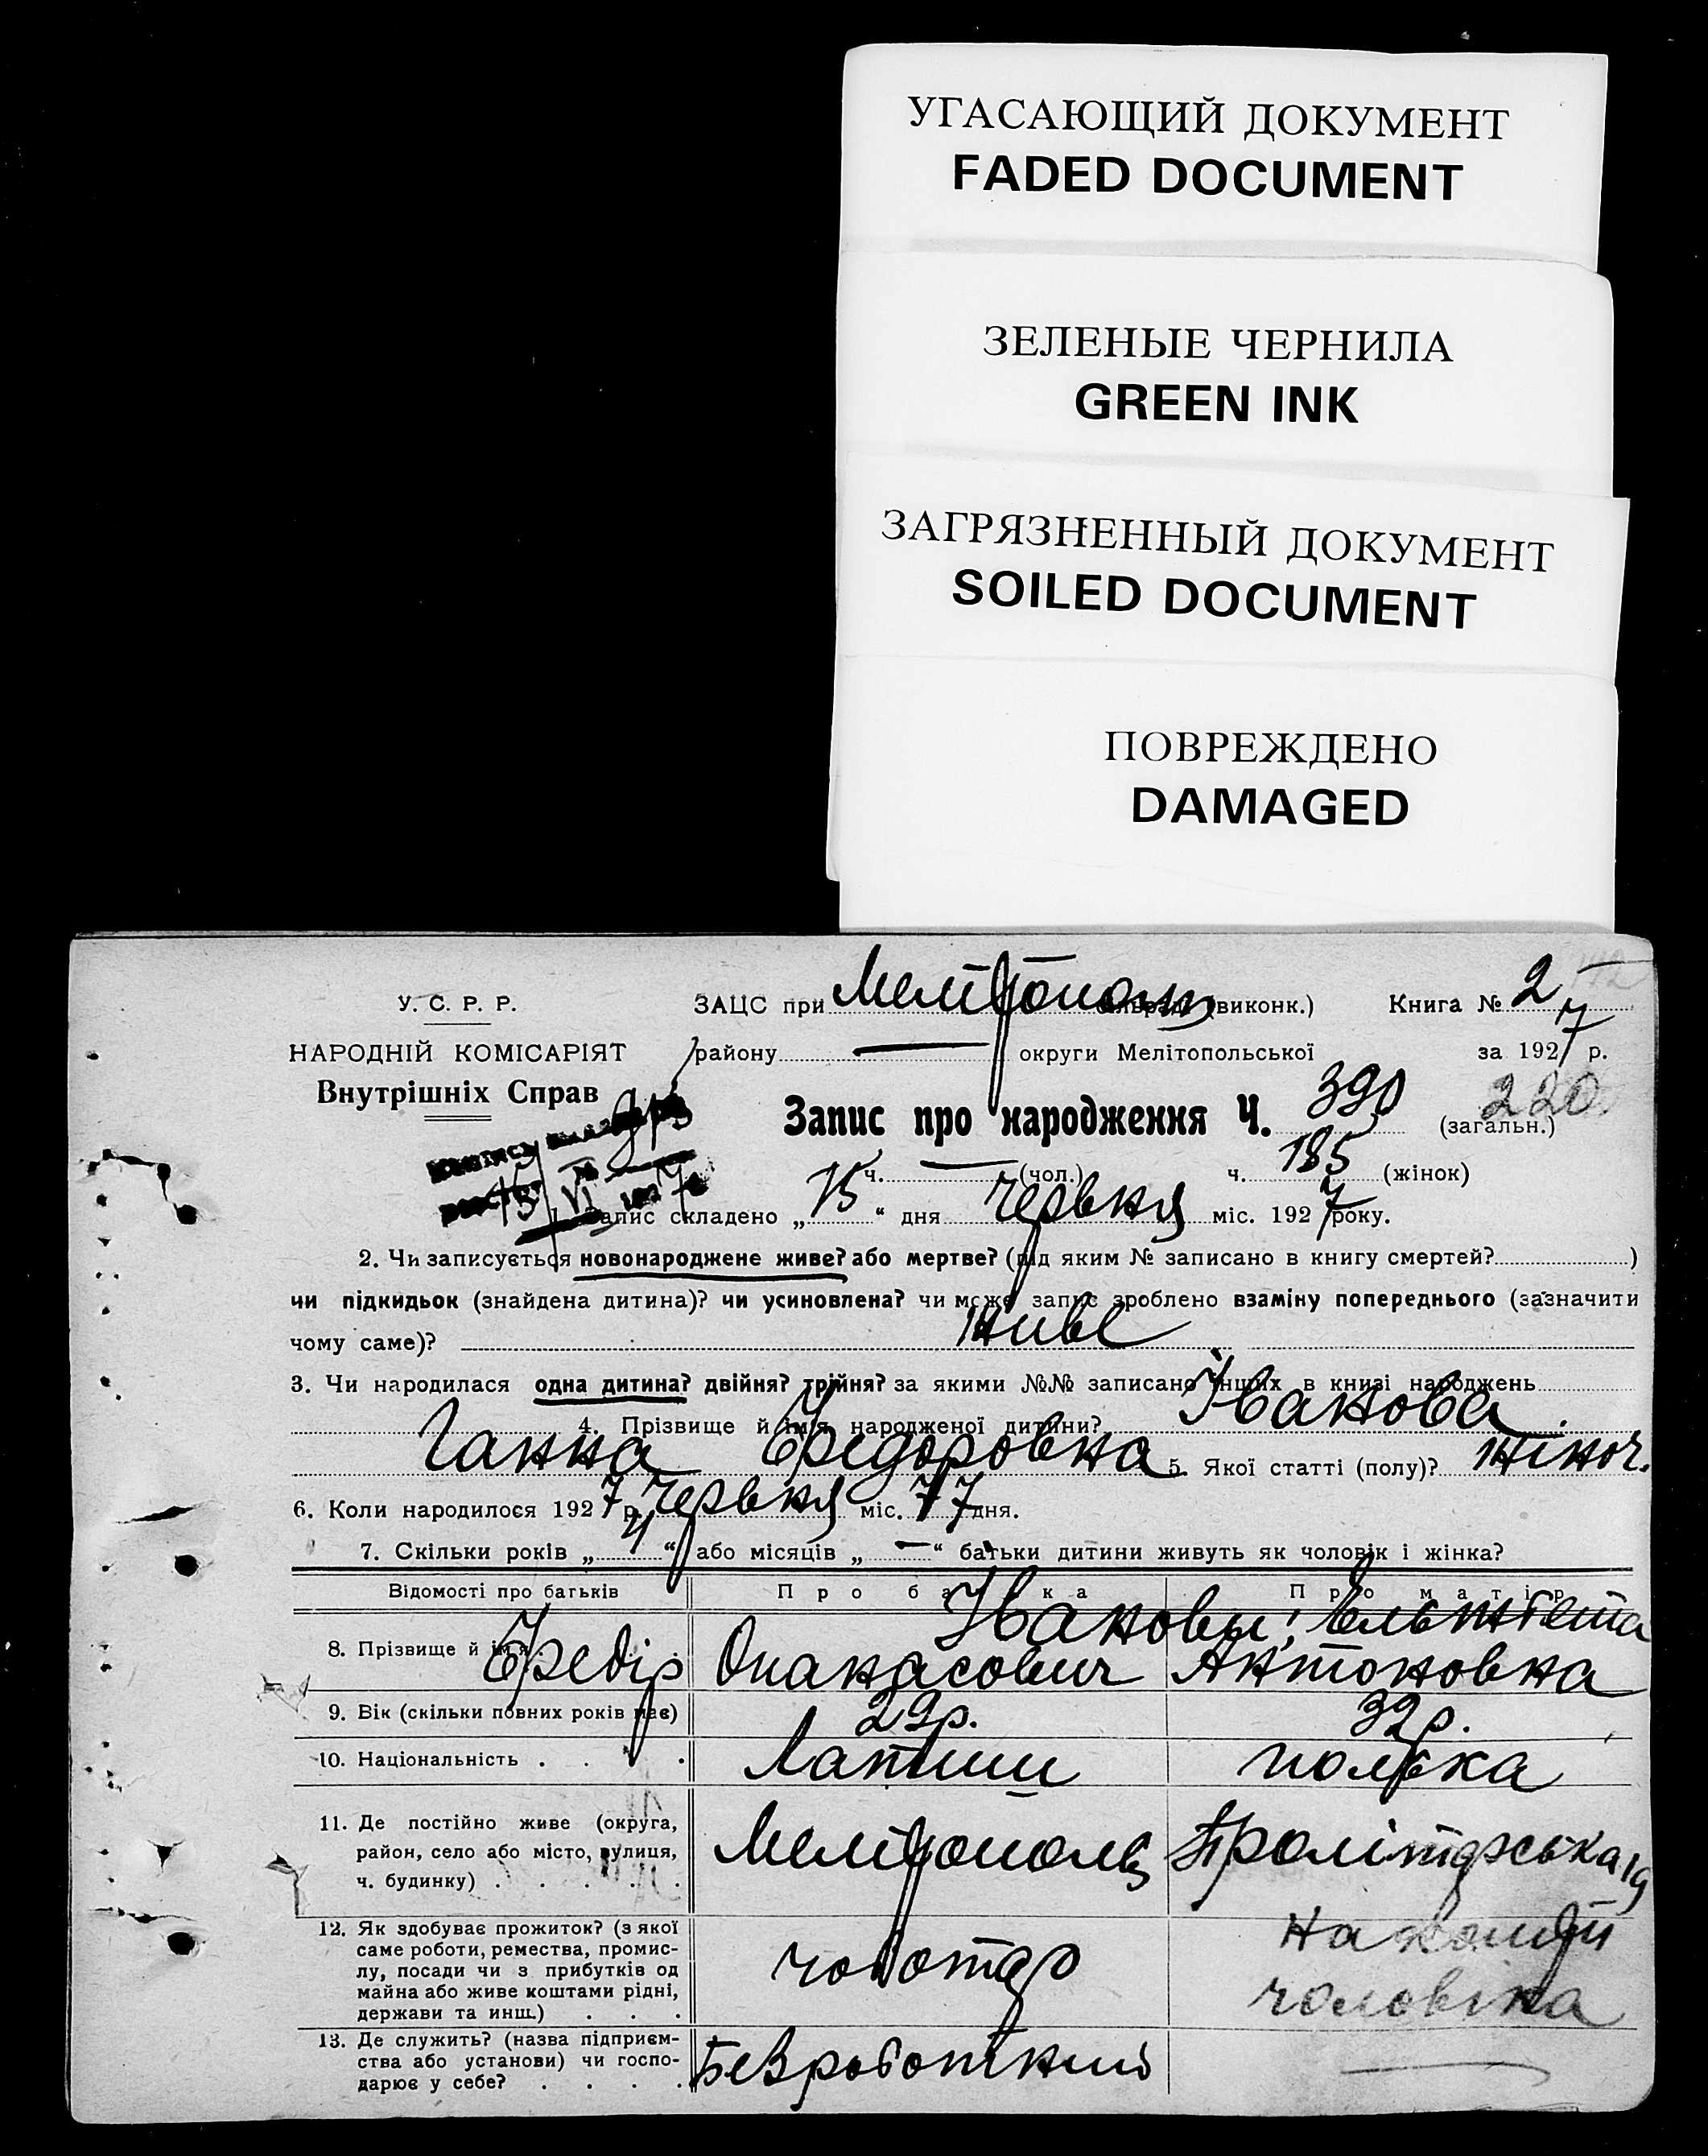 УГАСАЮЩИЙ ДОКУМЕНТ
FADED DOCUMENT
ЗЕЛЕНЫЕ ЧЕРНИЛА
GREEN INK
ЗАГРЯЗНЕННЫЙ ДОКУМЕНТ
SOILED DOCUMENT
ПОВРЕЖДЕНО
DAMAGED
У. С. Р. Р.
ЗАЦС при (виконк.) Книга № 2
НАРОДНІЙ КОМІСАРІЯТ
району — округи Мелітопольської за 1927 р.
Внутрішніх Справ
Запис про народження Ч. 390 (загальн.) 220
ч. — (чол.) ч. 185 (жінок)
Запис складено „15“ дня червня міс. 1927 року.
2. Чи записується новонароджене живе? або мертве? (під яким № записано в книгу смертей? )
чи підкидьок (знайдена дитина)? чи усиновлена? чи може запис зроблено взаміну попереднього (зазначити
чому саме)? живе
3. Чи народилася одна дитина? двійня? трійня? за якими №№ записано інших в книзі народжень
4. Прізвище й ім'я народженої дитини? Іванова
Ганна Федоровна 5. Якої статті (полу)? жіноч.
6. Коли народилося 1927 р. червня міс. 7 дня.
7. Скільки років „4“ або місяців „—“ батьки дитини живуть як чоловік і жінка?
Відомості про батьків Про батька Про матір
8. Прізвище й ім'я Іванови;
Федір Опанасович Антоновна
9. Вік (скільки повних років має) 29 р. 32 р.
10. Національність . . . Латиш полька
11. Де постійно живе (округа,
район, село або місто, вулиця,
ч. будинку) . . . . . Мелітополь Пролітарська 19
12. Як здобуває прожиток? (з якої
саме роботи, ремества, промис-
лу, посади чи з прибутків од
майна або живе коштами рідні,
держави та инш.) . . . чоботар на кошти
чоловіка
13. Де служить? (назва підприєм-
ства або установи) чи госпо-
дарює у себе? . . . . Безроботний —